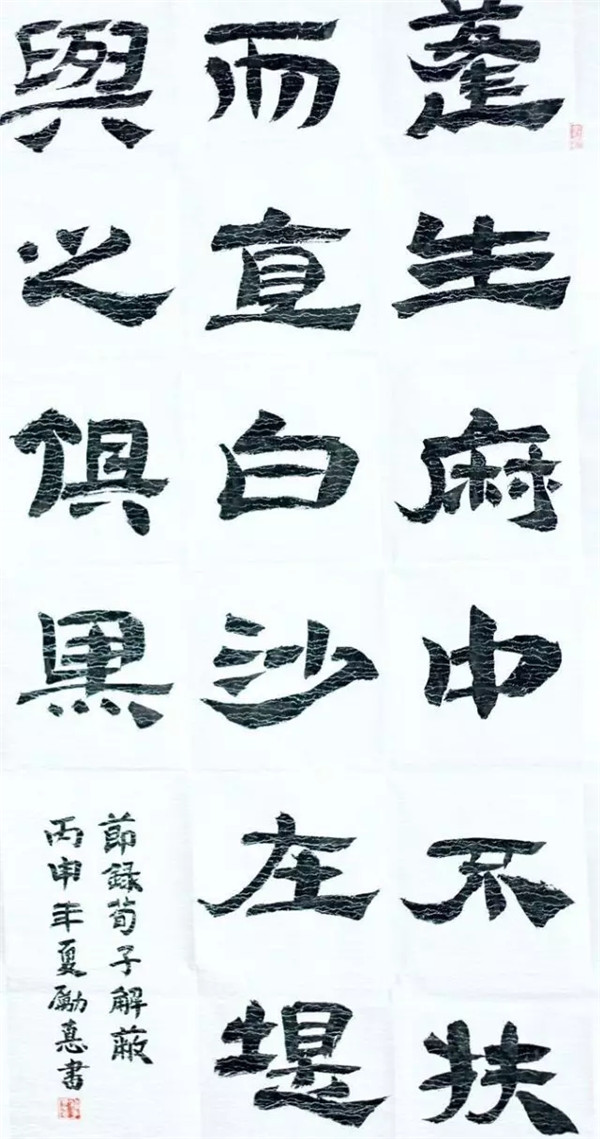 蓬生麻中不扶
而直白沙在堤
與之俱黑
節録荀子解蔽
丙申年夏勵書